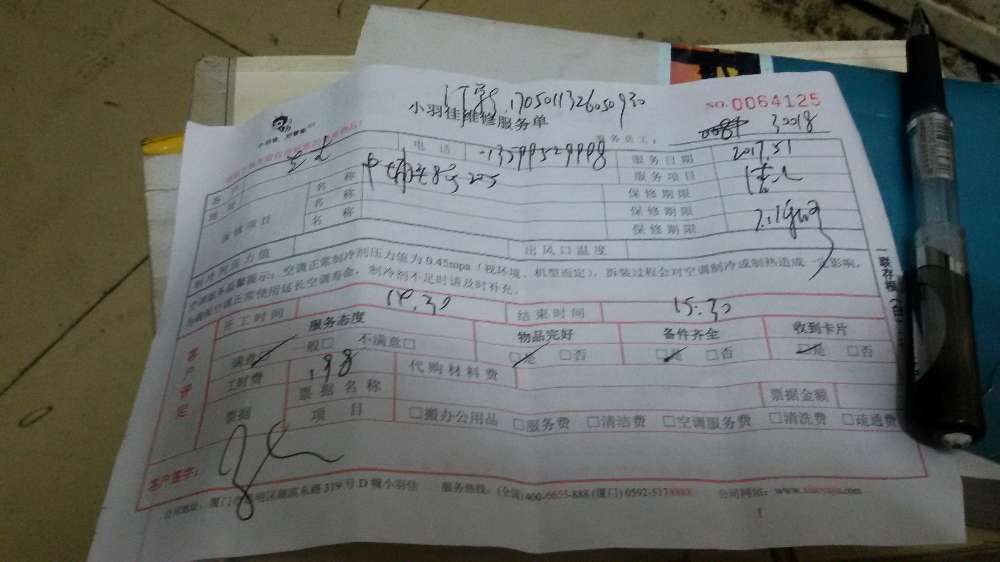 订单 1705011326050930
小羽佳维修服务单
NO.0064125
小羽佳
服务员工: 3018
电话 13599529998
服务日期 2017.5.1
名称
服务项目
名称
保修期限
名称
保修期限
保修项目
保修期限
制冷压力值
出风口温度
空调正常制冷剂压力值为0.45mpa(视环境、机型而定),拆装过程会对空调制冷或制热造成一定影响,
空调正常使用延长空调寿命,制冷剂不足时请及时补充。
开工时间 14:30 结束时间 15:30
客户评定
服务态度 物品完好 备件齐全 收到卡片
满意 一般□ 不满意□ □是 □否 □是 □否 □是 □否
工时费 198 代购材料费
票据 票据名称 票据金额
项目 □搬办公用品 □服务费 □清洁费 □空调服务费 □清洗费 □疏通费
客户签字:
公司地址:厦门市思明区湖滨东路319号D幢小羽佳 服务热线:(全国)400-6655-888(厦门)0592-5178888 公司网站:www.xiaoyujia.com